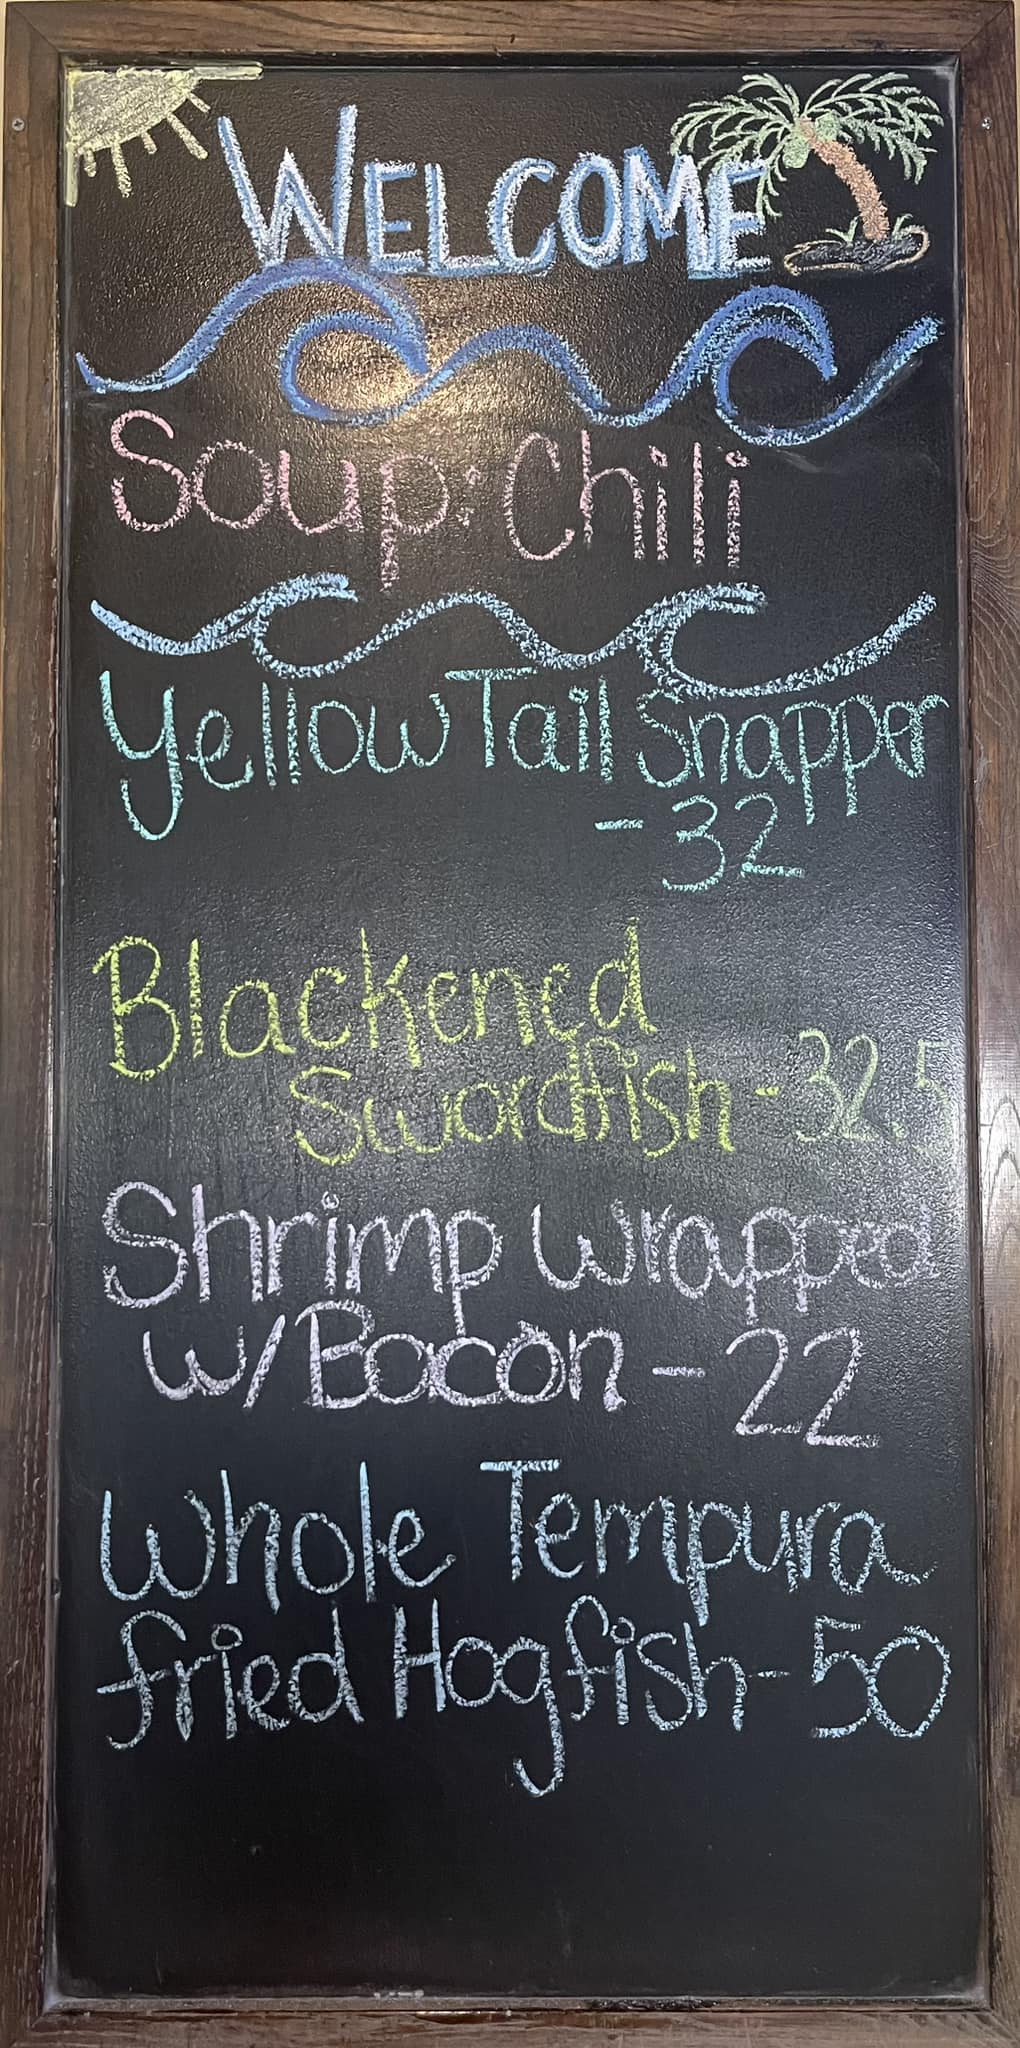 WELCOME
Soup: Chili
Yellow Tail Snapper
- 32
Blackened
Swordfish - 32.5
Shrimp Wrapped
w/ Bacon - 22
Whole Tempura
fried Hogfish - 50